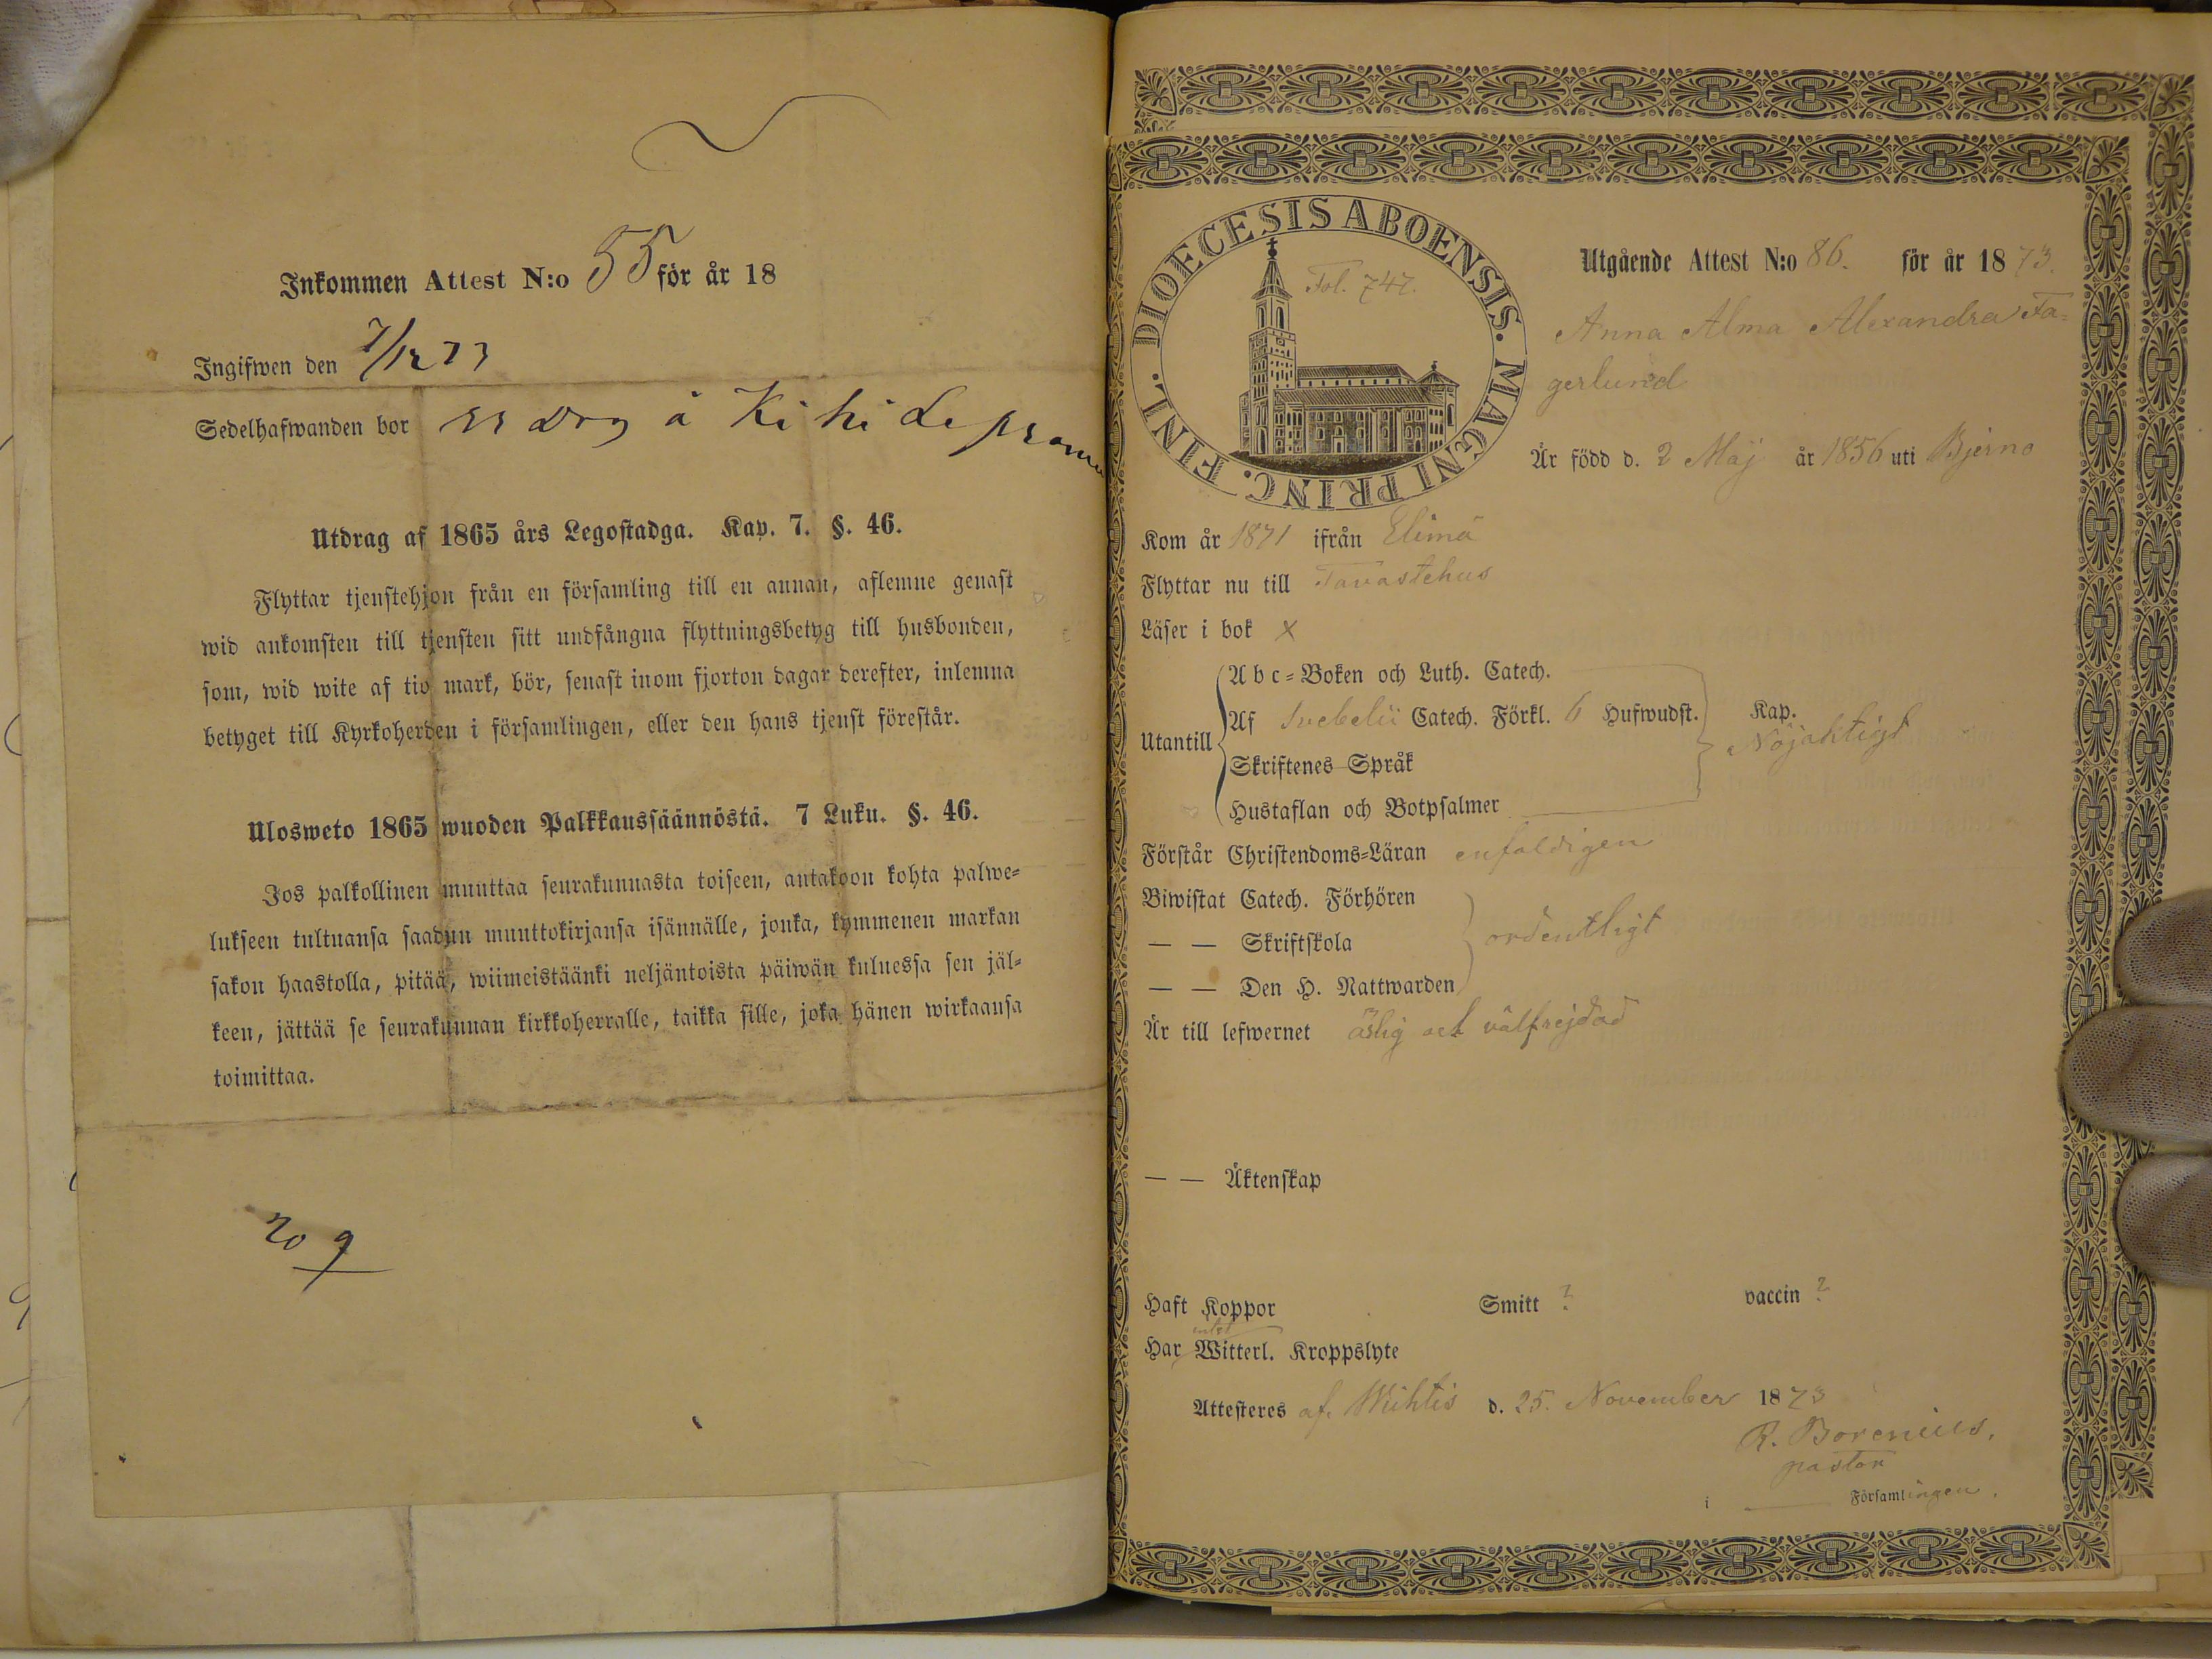 Inkommen Attest N:o 55 för år 18
Ingifwen den 7/12 73
Sedelhafwanden bor å
Utdrag af 1865 års Legostadga. Kap. 7. §. 46.
Flyttar tjenstehjon från en församling till en annan, aflemne genast
wid ankomsten till tjensten sitt undfångna flyttningsbetyg till husbonden,
som, wid wite af tio mark, bör, senast inom fjorton dagar derefter, inlemna
betyget till Kyrkoherden i församlingen, eller den hans tjenst förestår.
Ulosweto 1865 wuoden Palkkaussäännöstä. 7 Luku. §. 46.
Jos palkollinen muuttaa seurakunnasta toiseen, antakoon kohta palwe-
lukseen tultuansa saadun muuttokirjansa isännälle, jonka, kymmenen markan
sakon haastolla, pitää, wiimeistäänki neljäntoista päiwän kuluessa sen jäl-
keen, jättää se seurakunnan kirkkoherralle, taikka sille, joka hänen wirkaansa
toimittaa.
DIOECESIS ABOENSIS. MAGNI PRINC. FINL.
Fol. 747.
Utgående Attest N:o 86. för år 1873.
Anna Alma Alexandra Fa-
gerlund
Är född d. 2 Maj år 1856 uti Bjerno
Kom år 1871 ifrån Elimä
Flyttar nu till Tavastehus
Läser i bok x
Utantill
Abc-Boken och Luth. Catech.
Af Svebelii Catech. Förkl. 6 Hufwudst. Kap.
Nöjaktigt
Skriftenes Språk
Hustaflan och Botpsalmer
Förstår Christendoms-Läran enfaldigen
Biwistat Catech. Förhören
— — Skriftskola ordentligt
— — Den H. Nattwarden
Är till lefwernet ärlig och välfrejdad
— — Äktenskap
Haft Koppor Smitt ? vaccin ?
intet
Har Witterl. Kroppslyte
Attesteres af. Wichtis d. 25. November 1873
R. Borenius.
pastor
i Församlingen.